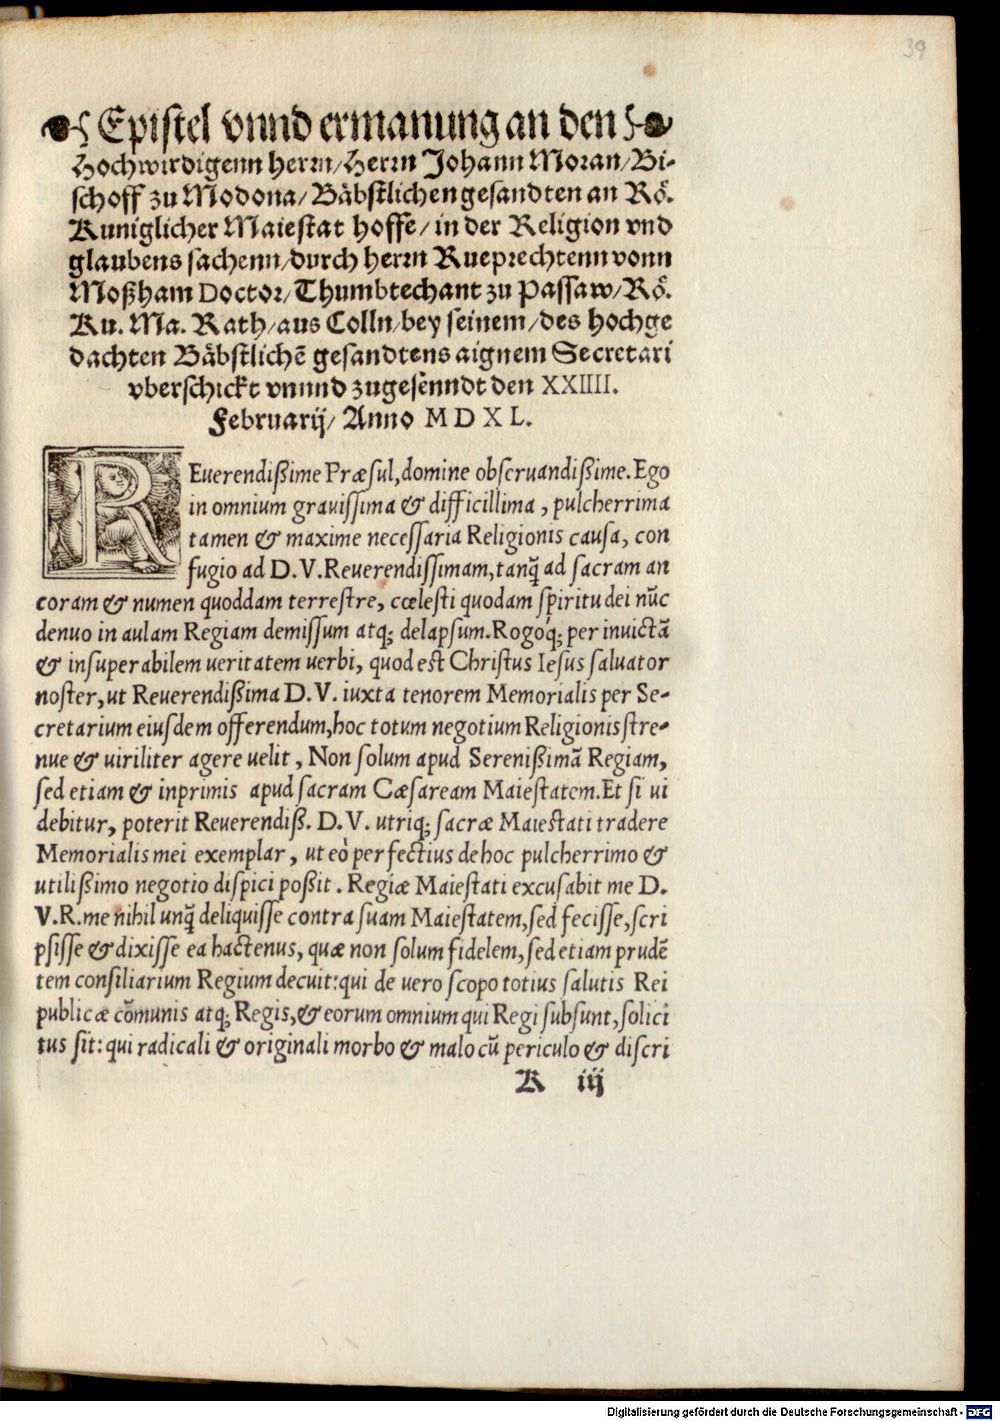 39
Epistel vnnd ermanung an den
Hochwirdigenn herrn/Herrn Johann Moran/Bi-
schoff zu Modona/Bäbstlichen gesandten an Rö.
Kuniglicher Maiestat hoffe/in der Religion vnd
glaubens sachenn/durch herrn Rueprechtenn vonn
Moßham Doctor/Thumbtechant zu Passaw/Rö.
Ku. Ma. Rath/aus Colln/bey seinem/des hochge
dachten Bäbstlichē gesandtens aignem Secretari
vberschickt vnnnd zugesenndt den XXIIII.
Februarij/ Anno M D X L.
REuerendißime Præsul,domine obseruandißime.Ego
in omnium grauissima & difficillima, pulcherrima
tamen & maxime necessaria Religionis causa, con
fugio ad D.V.Reuerendissimam,tanq̃ ad sacram an
coram & numen quoddam terrestre, cœlesti quodam spiritu dei nūc
denuo in aulam Regiam demissum atq; delapsum.Rogóq; per inuictā
& insuperabilem ueritatem uerbi, quod est Christus Iesus saluator
noster,ut Reuerendißima D.V. iuxta tenorem Memorialis per Se-
cretarium eiusdem offerendum,hoc totum negotium Religionis stre-
nue & uiriliter agere uelit, Non solum apud Serenißimā Regiam,
sed etiam & inprimis apud sacram Cæsaream Maiestatem.Et si ui
debitur, poterit Reuerendiß. D.V. utriq; sacræ Maiestati tradere
Memorialis mei exemplar, ut eò perfectius de hoc pulcherrimo &
utilißimo negotio dispici poßit. Regiæ Maiestati excusabit me D.
V.R.me nihil unq̃ deliquisse contra suam Maiestatem,sed fecisse,scri
psisse & dixisse ea hactenus, quæ non solum fidelem,sed etiam prudē
tem consiliarium Regium decuit:qui de uero scopo totius salutis Rei
publicæ cōmunis atq; Regis,& eorum omnium qui Regi subsunt,solici
tus sit: qui radicali & originali morbo & malo cū periculo & discri
K iij
Digitalisierung gefördert durch die Deutsche Forschungsgemeinschaft - DFG